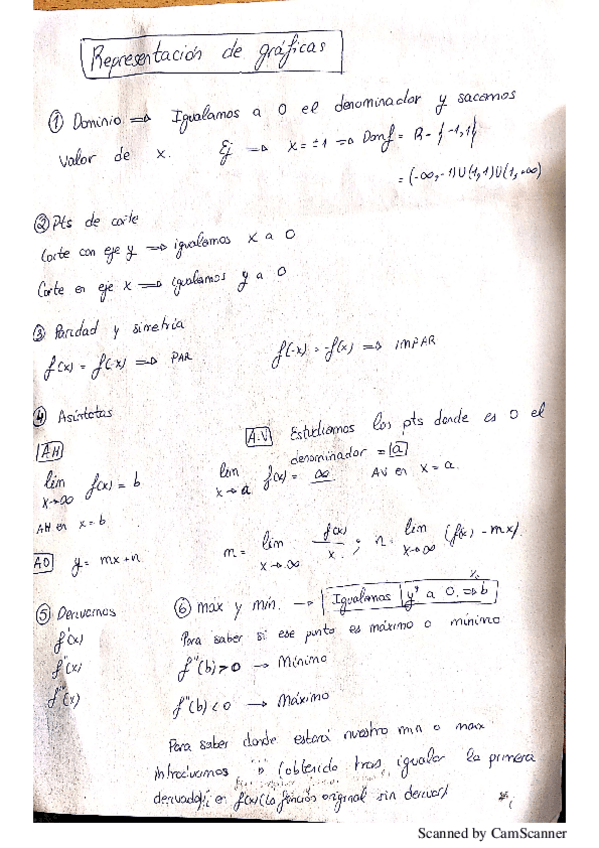 Representación de gráficas
① Dominio ⇒ Igualamos a 0 el denominador y sacamos
valor de x. Ej ⇒ x = ±1 ⇒ Domf = R - {-1,1}
= (-∞,-1)U(1,1)U(1,+∞)
② Pts de corte
Corte con eje y ⇒ igualamos x a 0
Corte en eje x ⇒ igualamos y a 0
③ Paridad y simetría
f(x) = f(-x) ⇒ PAR f(-x) = -f(x) ⇒ IMPAR
④ Asíntotas
AH
A.V Estudiamos los pts donde es 0 el
denominador = a
lim f(x) = b
x→∞
lim f(x) = ∞ AV en x = a.
x→a
AH en x = b
AO y = mx+n
m = lim f(x)/x ; n = lim (f(x) - mx)
x→∞ x→∞
⑤ Derivamos
f'(x)
f''(x)
f'''(x)
⑥ max y min. → Igualamos y' a 0. ⇒ b
Para saber si ese punto es máximo o mínimo
f''(b) > 0 → Mínimo
f''(b) < 0 → Máximo
Para saber donde estará nuestro min o max
introducimos (obtenido tras igualar la primera
derivada) en f(x) (la función original sin derivar)
Scanned by CamScanner